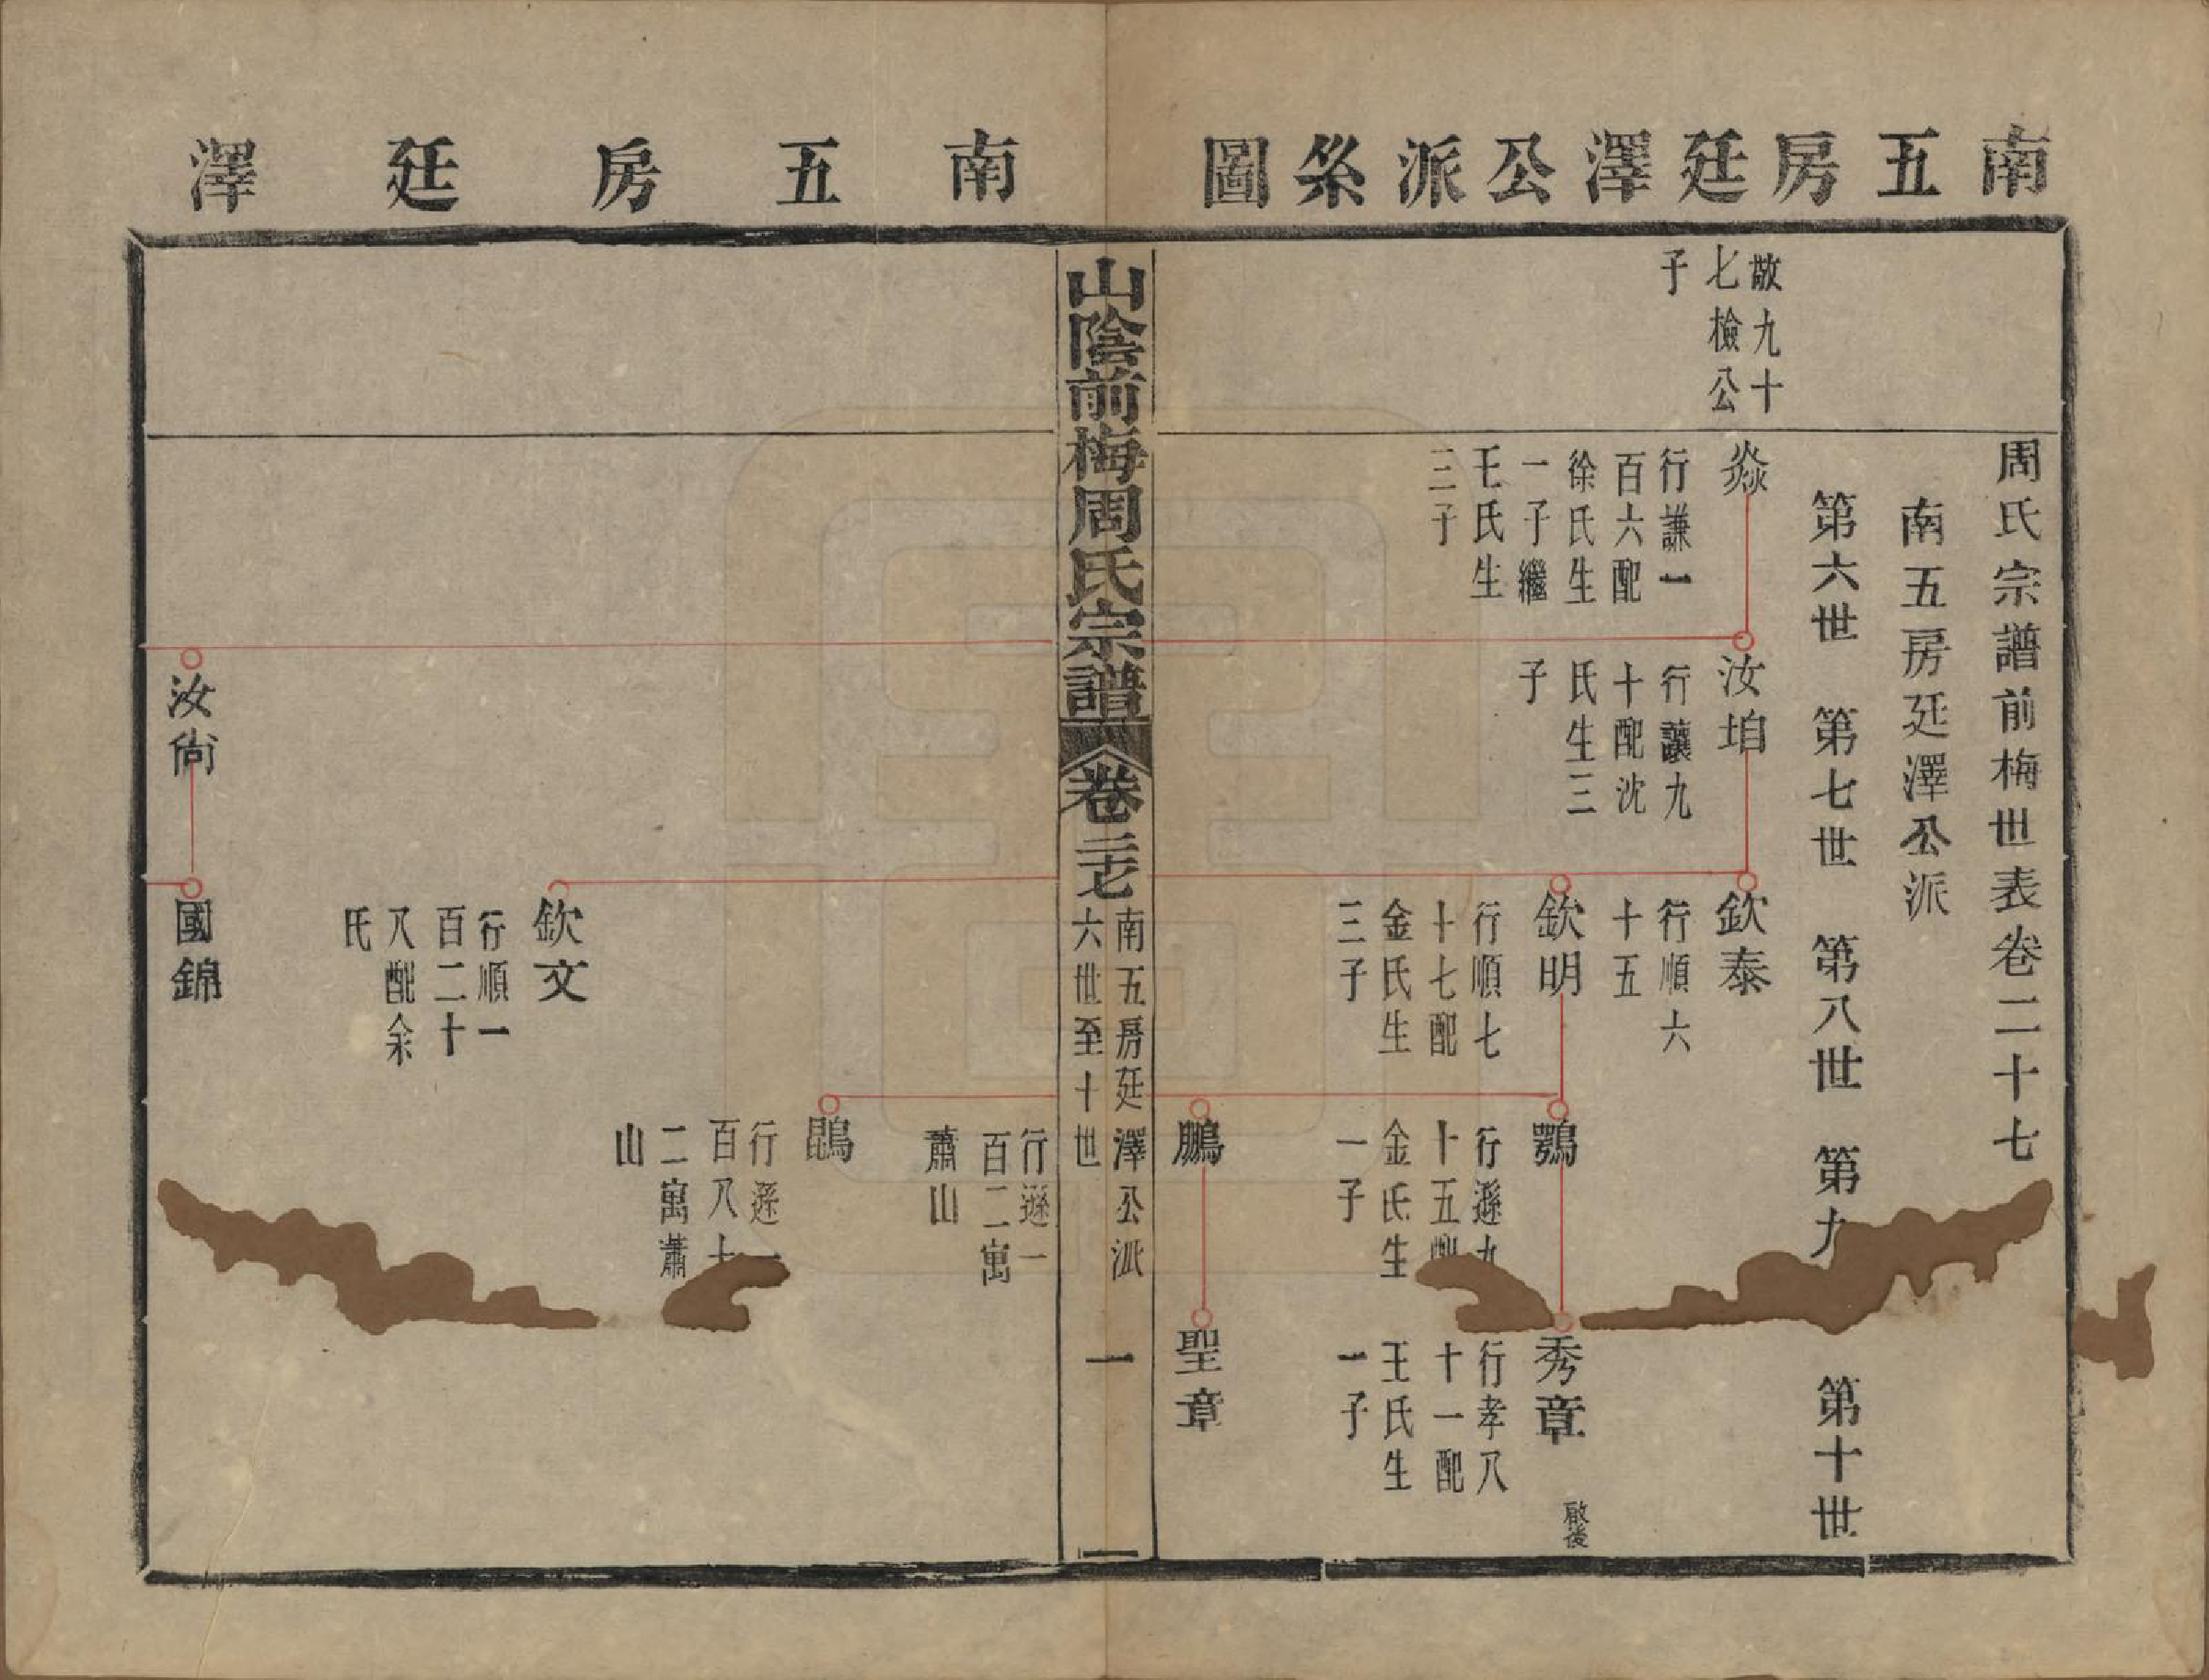 南五房廷澤公派糸圖
周氏宗譜前梅世表卷二十七
南五房廷澤公派
第六世 第七世 第八世 第九 第十世
敬九十
七檢公
子
焱
行謙一
百六配
徐氏生
一子繼
王氏生
三子
汝垍
行讓九
十配沈
氏生三
子
欽泰
行順六
十五
欽明
行順七
十七配
金氏生
三子
鶚
行遜九
十五配
金氏生
一子
秀章
啟後
行孝八
十一配
王氏生
一子
鵬
聖章
山陰前梅周氏宗譜
卷二十七
南五房廷澤公派
六世至十世
一
南五房廷澤
行遜一
百二寓
蕭山
鵾
行遜一
百八十
二寓蕭
山
欽文
行順一
百二十
八配余
氏
汝尙
國錦